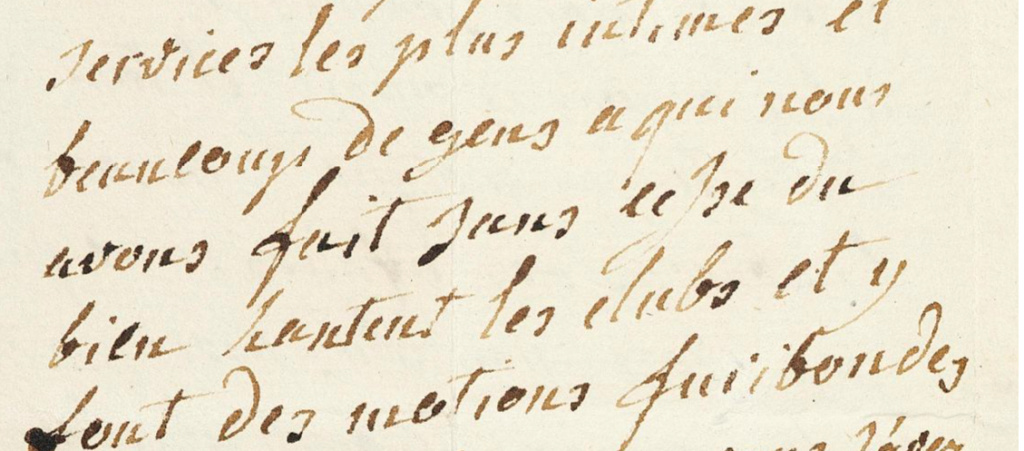 services les plus intimes et
beaucoup de gens a qui nous
avons fait sans cesse du
bien hantent les clubs et y
font des motions furibondes